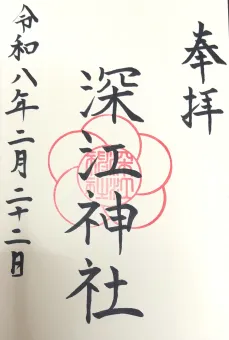 奉拝
深江神社
令和八年二月二十二日